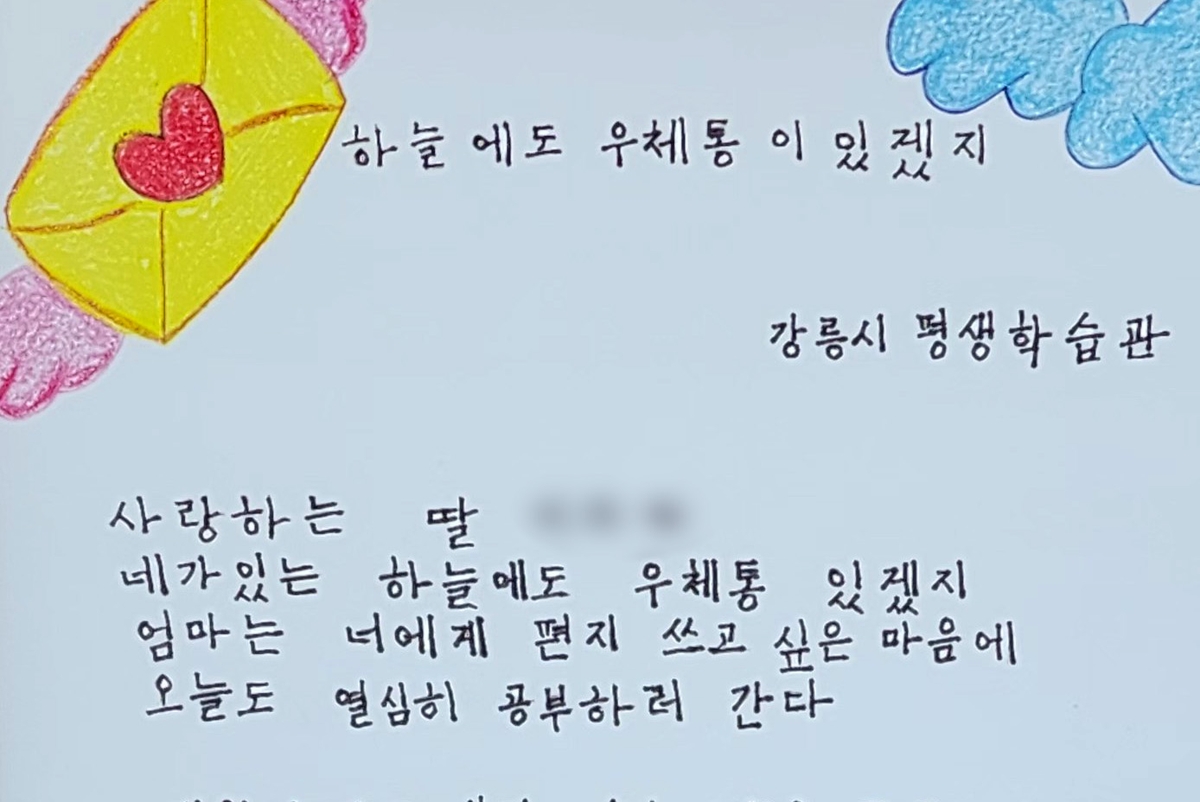 하늘에도 우체통이 있겠지
강릉시 평생학습관
사랑하는 딸
네가있는 하늘에도 우체통 있겠지
엄마는 너에게 편지 쓰고 싶은 마음에
오늘도 열심히 공부하러 간다